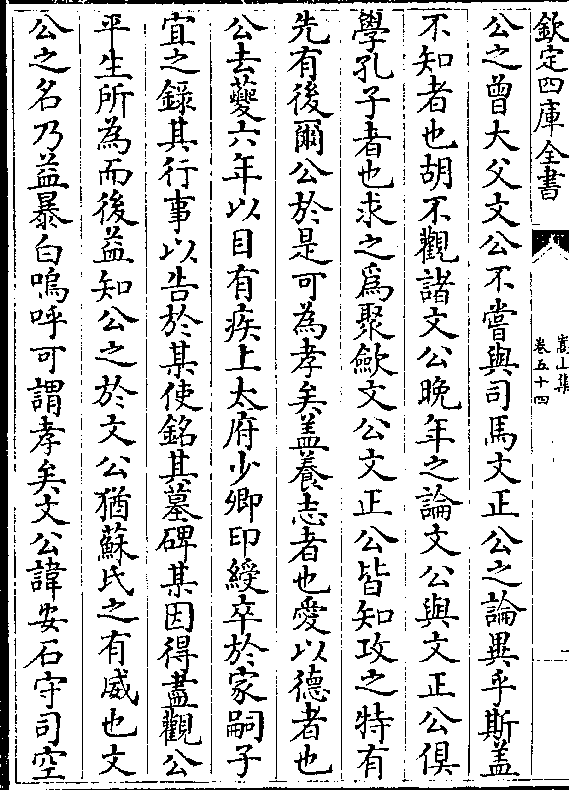 欽定四庫全書
嵩山集
卷五十四
一
公之曾大父文公不嘗與司馬文正公之論異乎斯蓋
不知者也胡不觀諸文公晚年之論文公與文正公俱
學孔子者也求之爲聚歛文公文正公皆知攻之特有
先有後爾公於是可為孝矣盖養志者也愛以德者也
公去夔六年以目有疾上太府少卿印綬卒於家嗣子
宜之錄其行事以告於某使銘其墓碑某因得盡觀公
平生所為而後益知公之於文公猶蘇氏之有威也文
公之名乃益暴白嗚呼可謂孝矣文公諱安石守司空